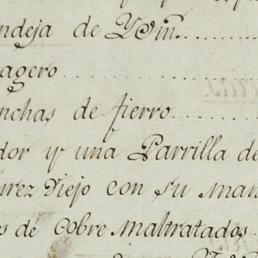 ndeja de
agero
nchas de fierro
dor y una Parrilla de
urez Viejo con su man
s de cobre maltratados